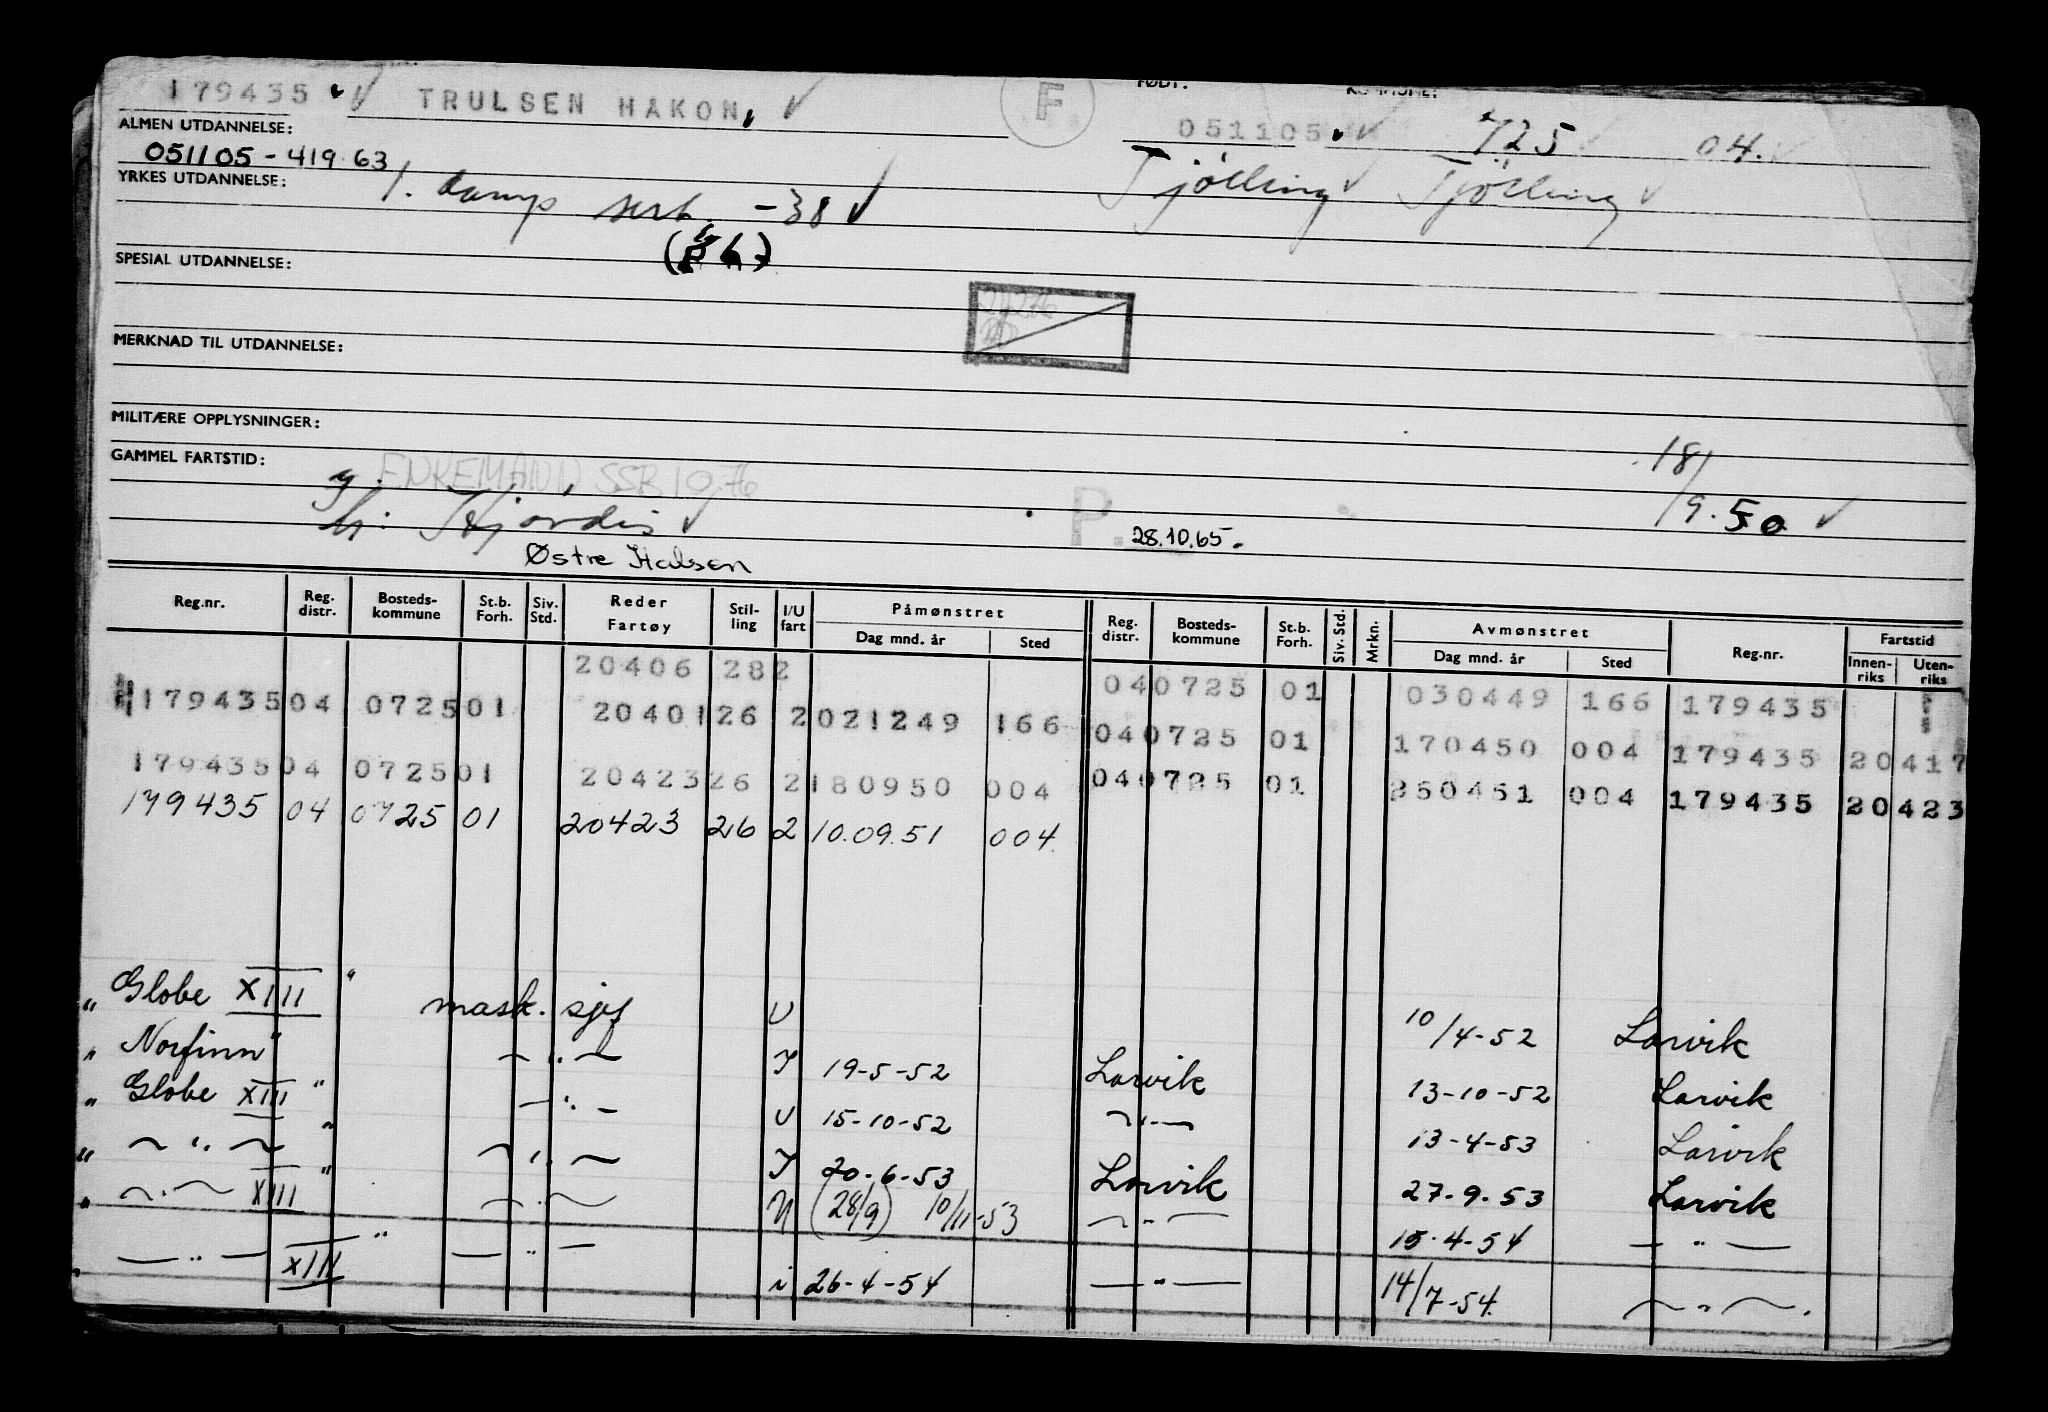 179435 TRULSEN HAKON. F FØDT: KOMMUNE:
051105 725 04.
ALMEN UTDANNELSE:
051105-419 63
Tjölling Tjölling
YRKES UTDANNELSE: 1. damp sert. -38
SPESIAL UTDANNELSE:
MERKNAD TIL UTDANNELSE:
MILITÆRE OPPLYSNINGER:
GAMMEL FARTSTID: 18/9.50
g. ENKEMANN SSB 1976
h: Hjørdis P. 28.10.65.
Østre Halsen
Reg.nr. Reg. distr. Bosteds-kommune St.b. Forh. Siv. Std. Reder Fartøy Stil-ling I/U fart Påmønstret Dag mnd. år Sted Reg. distr. Bosteds-kommune St.b. Forh. Siv. Std. Mrkn. Avmønstret Dag mnd. år Sted Reg.nr. Fartstid Innen-riks Uten-riks
20406 282 040725 01 030449 166 179435
179435 04 0725 01 20401 26 2 021249 166 040725 01 170450 004 179435 20 417
179435 04 0725 01 20423 26 2 180950 004 040725 01 250451 004 179435 20 423
179435 04 0725 01 20423 26 2 10.09.51 004
" Globe XIII " mask. sjef U 10/4-52 Larvik
" Norfinn" — " — I 19-5-52 Larvik 13-10-52 Larvik
" Globe XIII " — " — U 15-10-52 — " — 13-4-53 Larvik
" — " — " — " — I 20-6-53 Larvik 27-9-53 Larvik
" — " — XIII " — " — U (28/9) 10/11-53 — " — 15-4-54 — " —
" — " — XIII " — " — i 26-4-54 — " — 14/7-54. — " —.